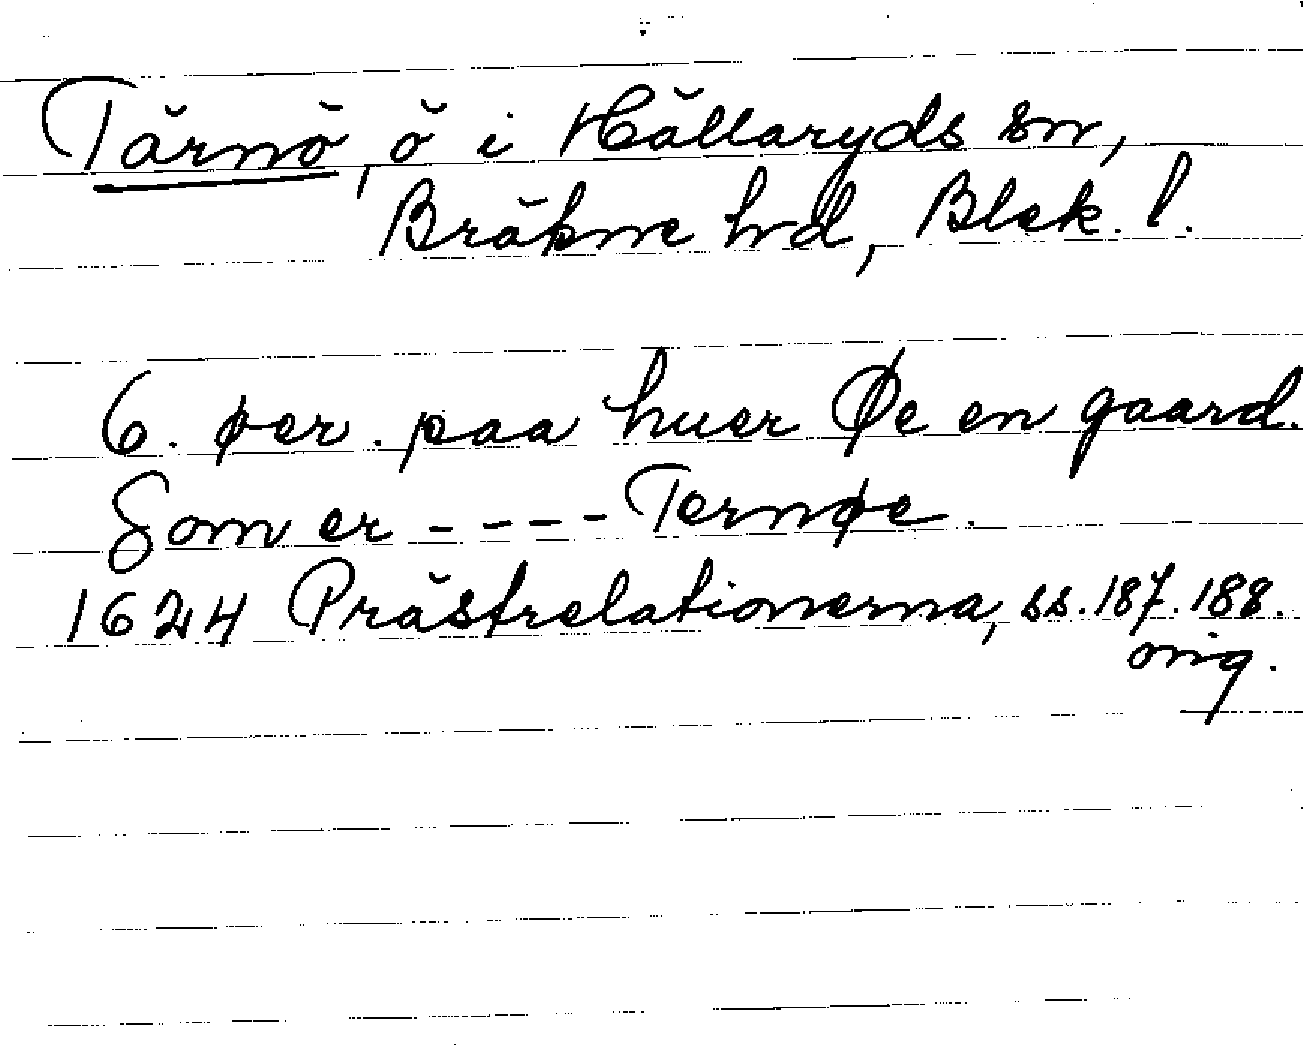 Tärnö, ö i Hällaryds sn,
Bräkne hd, Blek. l.
6. øer. paa huer Øe en gaard.
Som er - - - - Ternøe.
1624 Prästrelationerna, ss. 187. 188.
orig.